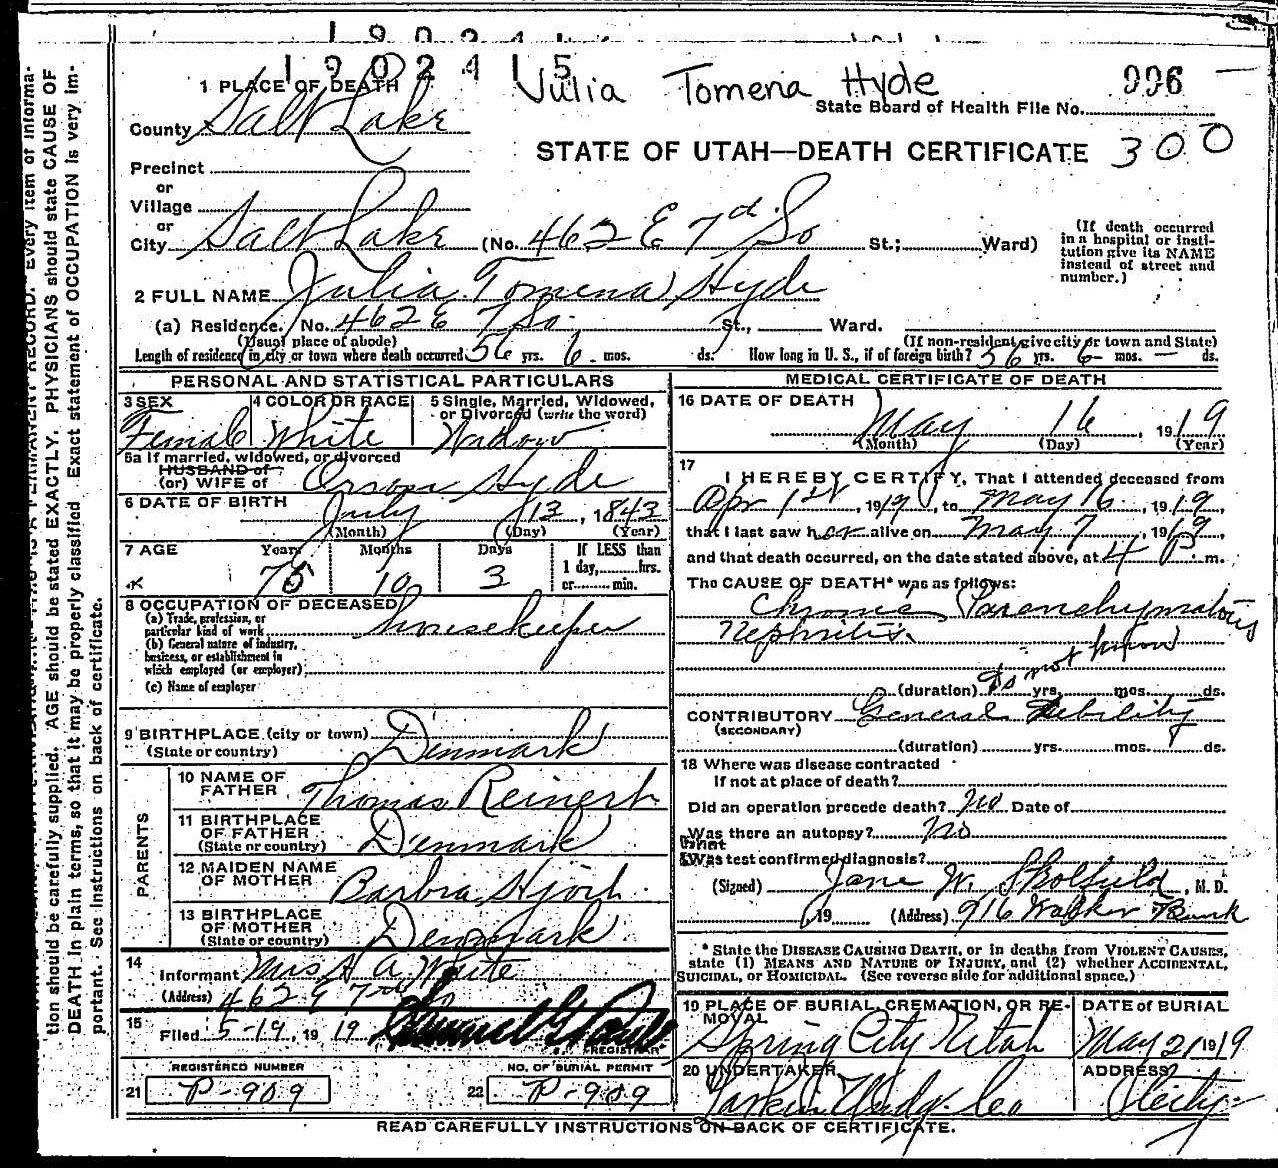 1902415
Julia Tomena Hyde
996
State Board of Health File No.
STATE OF UTAH—DEATH CERTIFICATE 300
1 PLACE OF DEATH
County Salt Lake
Precinct
or
Village
or
City Salt Lake (No. 462 E 7th So St.; Ward)
(If death occurred in a hospital or insti-
tution give its NAME
instead of street and
number.)
2 FULL NAME Julia Tomena Hyde
(a) Residence. No. 462 E 7 So. St., Ward.
(Usual place of abode) (If non-resident give city or town and State)
Length of residence in city or town where death occurred 56 yrs. 6 mos. ds. How long in U. S., if of foreign birth? 56 yrs. 6 mos. — ds.
PERSONAL AND STATISTICAL PARTICULARS
3 SEX Female
4 COLOR OR RACE White
5 Single, Married, Widowed,
or Divorced (write the word)
Widow
5a If married, widowed, or divorced
HUSBAND of
(or) WIFE of Orson Hyde
6 DATE OF BIRTH July 13, 1843
(Month) (Day) (Year)
7 AGE Years Months Days If LESS than
75 10 3 1 day, hrs.
or min.
8 OCCUPATION OF DECEASED
(a) Trade, profession, or
particular kind of work housekeeper
(b) General nature of industry,
business, or establishment in
which employed (or employer)
(c) Name of employer
9 BIRTHPLACE (city or town) Denmark
(State or country)
PARENTS
10 NAME OF
FATHER Thomas Reinert
11 BIRTHPLACE
OF FATHER
(State or country) Denmark
12 MAIDEN NAME
OF MOTHER Barbra Hjorth
13 BIRTHPLACE
OF MOTHER
(State or country) Denmark
14
Informant Mrs H A White
(Address) 462 E 7 So
15
Filed 5-19, 1919
REGISTRAR
REGISTERED NUMBER NO. OF BURIAL PERMIT
21 P-909 22 P-909
MEDICAL CERTIFICATE OF DEATH
16 DATE OF DEATH
May 16, 1919
(Month) (Day) (Year)
17
I HEREBY CERTIFY, That I attended deceased from
Apr 1st, 1919, to May 16, 1919,
that I last saw her alive on May 7, 1919,
and that death occurred, on the date stated above, at 4 P. m.
The CAUSE OF DEATH* was as follows:
Chronic Parenchymatous
Nephritis.
(duration) Do not know yrs. mos. ds.
CONTRIBUTORY General Debility
(SECONDARY)
(duration) yrs. mos. ds.
18 Where was disease contracted
If not at place of death?
Did an operation precede death? No Date of
Was there an autopsy? No
What
test confirmed diagnosis?
(Signed) Jane W. Skolfield, M. D.
, 19 (Address) 916 Walker Bank
* State the DISEASE CAUSING DEATH, or in deaths from VIOLENT CAUSES,
state (1) MEANS AND NATURE OF INJURY, and (2) whether ACCIDENTAL,
SUICIDAL, or HOMICIDAL. (See reverse side for additional space.)
19 PLACE OF BURIAL, CREMATION, OR RE-
MOVAL
Spring City Utah
DATE of BURIAL
May 21 1919
20 UNDERTAKER
Larkin Undg. Co
ADDRESS
City
READ CAREFULLY INSTRUCTIONS ON BACK OF CERTIFICATE.
tion should be carefully supplied. AGE should be stated EXACTLY. PHYSICIANS should state CAUSE OF
DEATH in plain terms, so that it may be properly classified. Exact statement of OCCUPATION is very im-
portant. See instructions on back of certificate.